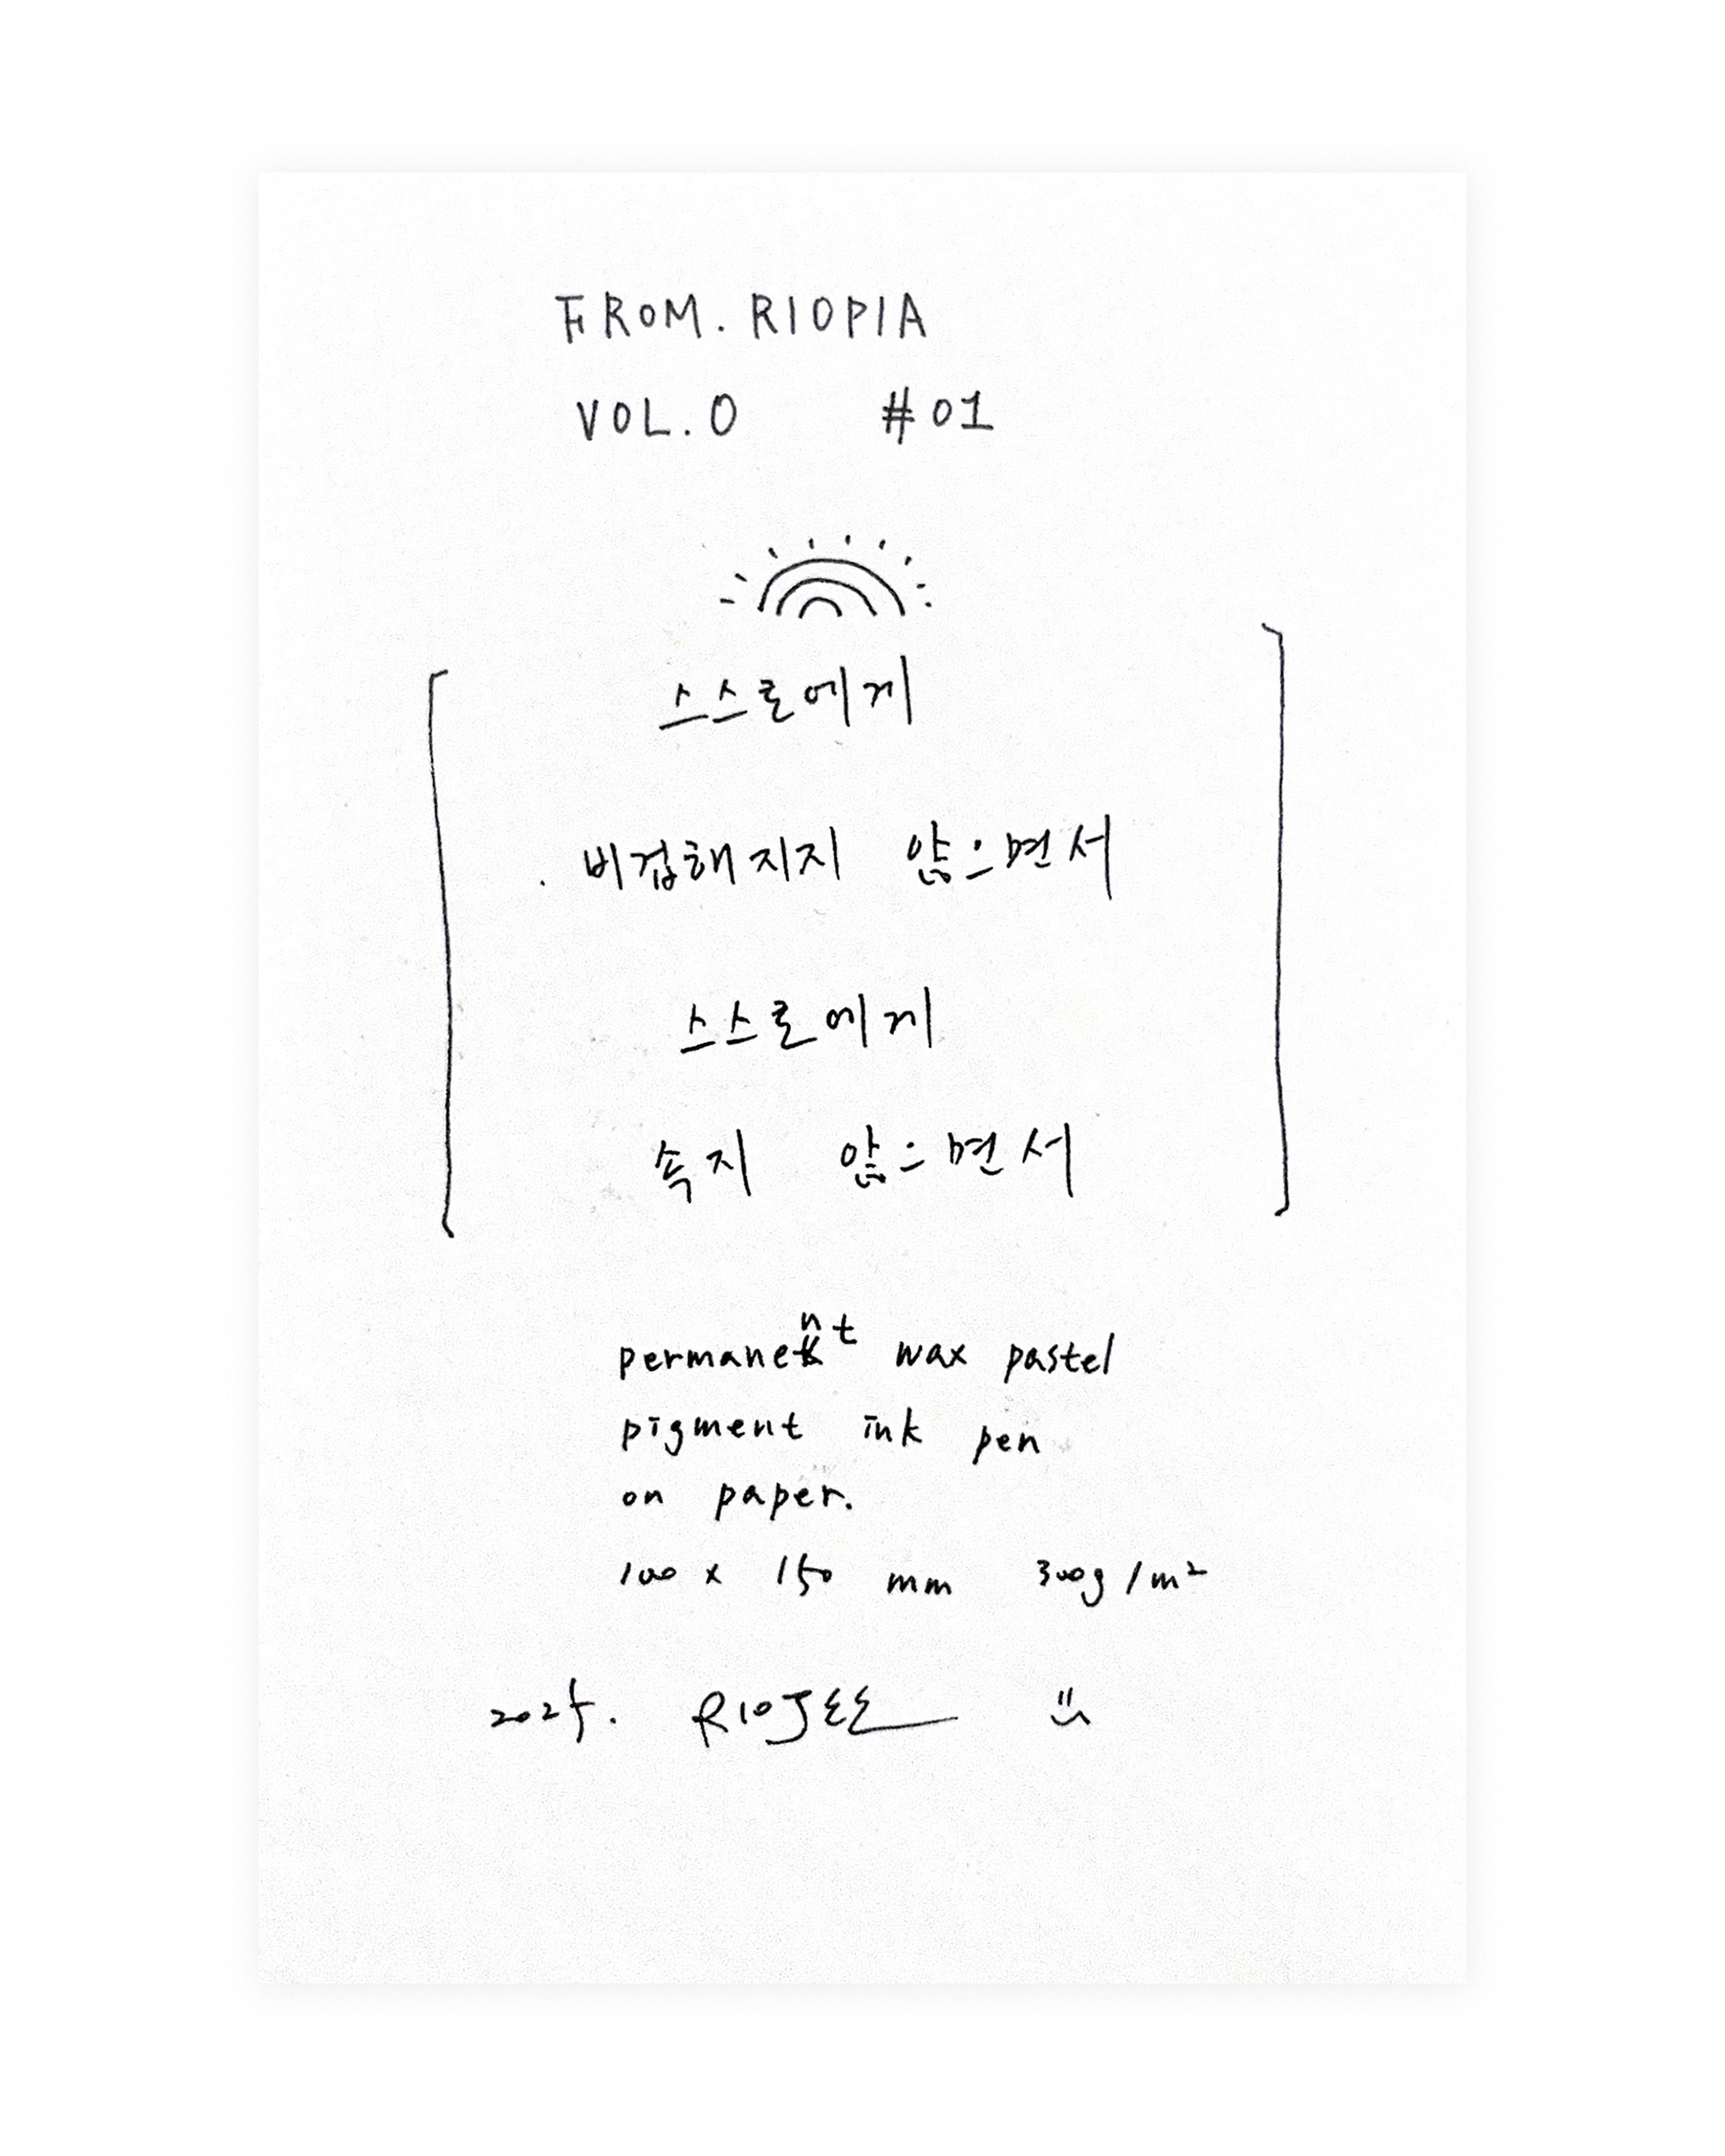 FROM. RIOPIA
VOL. 0 #01
스스로에게
비겁해지지 않으면서
스스로에게
속지 않으면서
permanent wax pastel
pigment ink pen
on paper.
100 x 150 mm 300g/m²
2025. RIOJEE